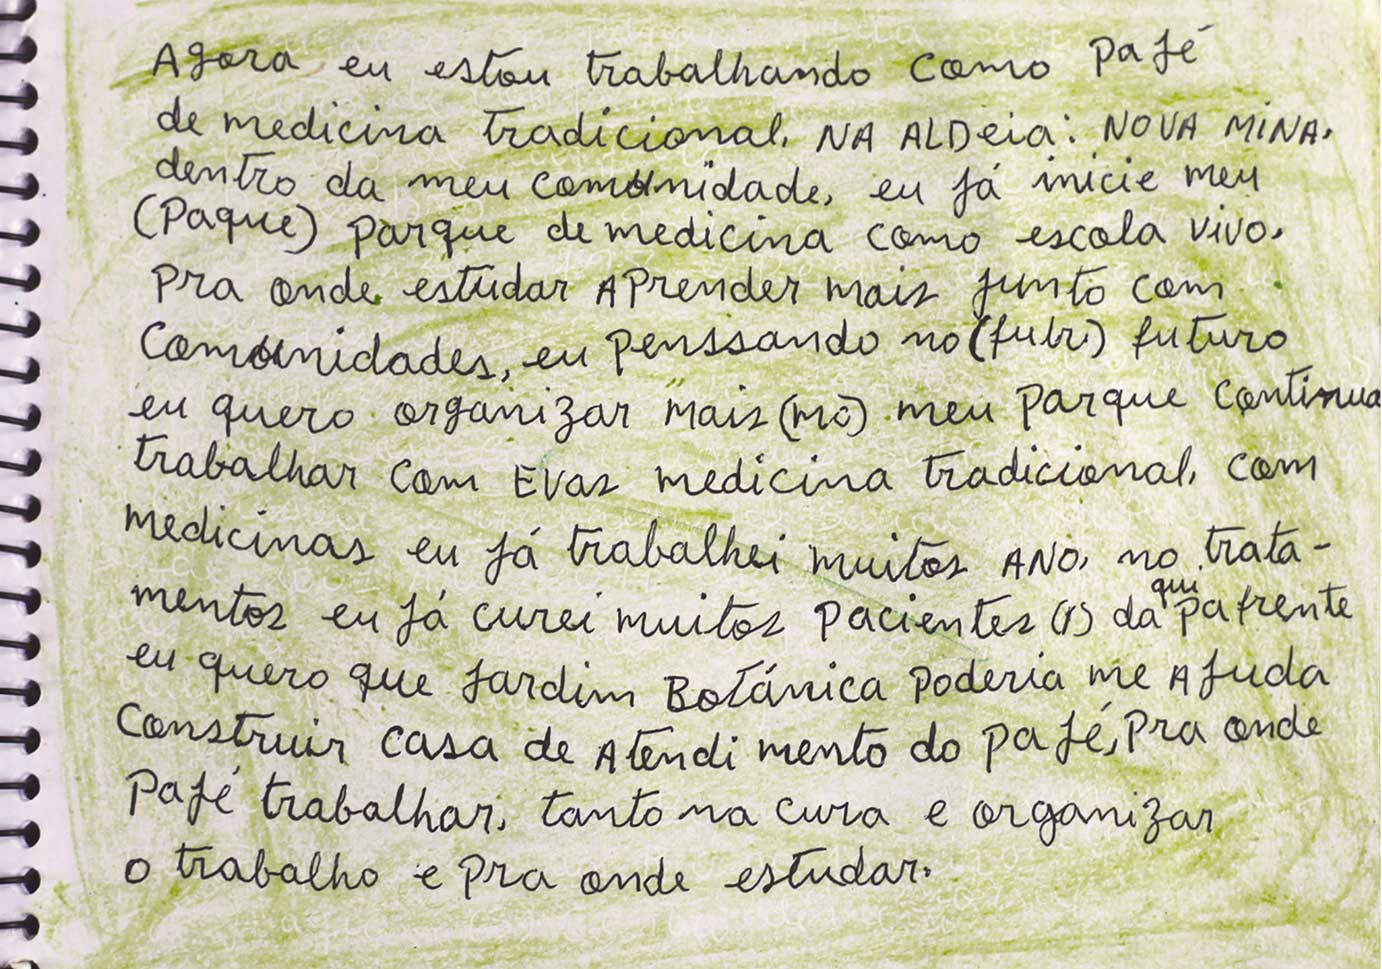 Agora eu estou trabalhando como pajé
de medicina tradicional. NA ALDeia: NOVA MiNA.
dentro da meu comunidade, eu já inicie meu
(Paque) parque de medicina como escola vivo.
Pra onde estudar APrender mais junto com
Comunidades, eu penssando no (futr) futuro
eu quero organizar mais (mo) meu parque continua
trabalhar com EVas medicina tradicional, com
medicinas eu já trabalhei muitos ANO, no trata-
mentos eu já curei muitos pacientes (s) daqui pa frente
eu quero que jardim Botánica poderia me Ajuda
Construir casa de Atendimento do pajé, pra onde
Pajé trabalhar, tanto na cura e organizar
o trabalho e pra onde estudar.